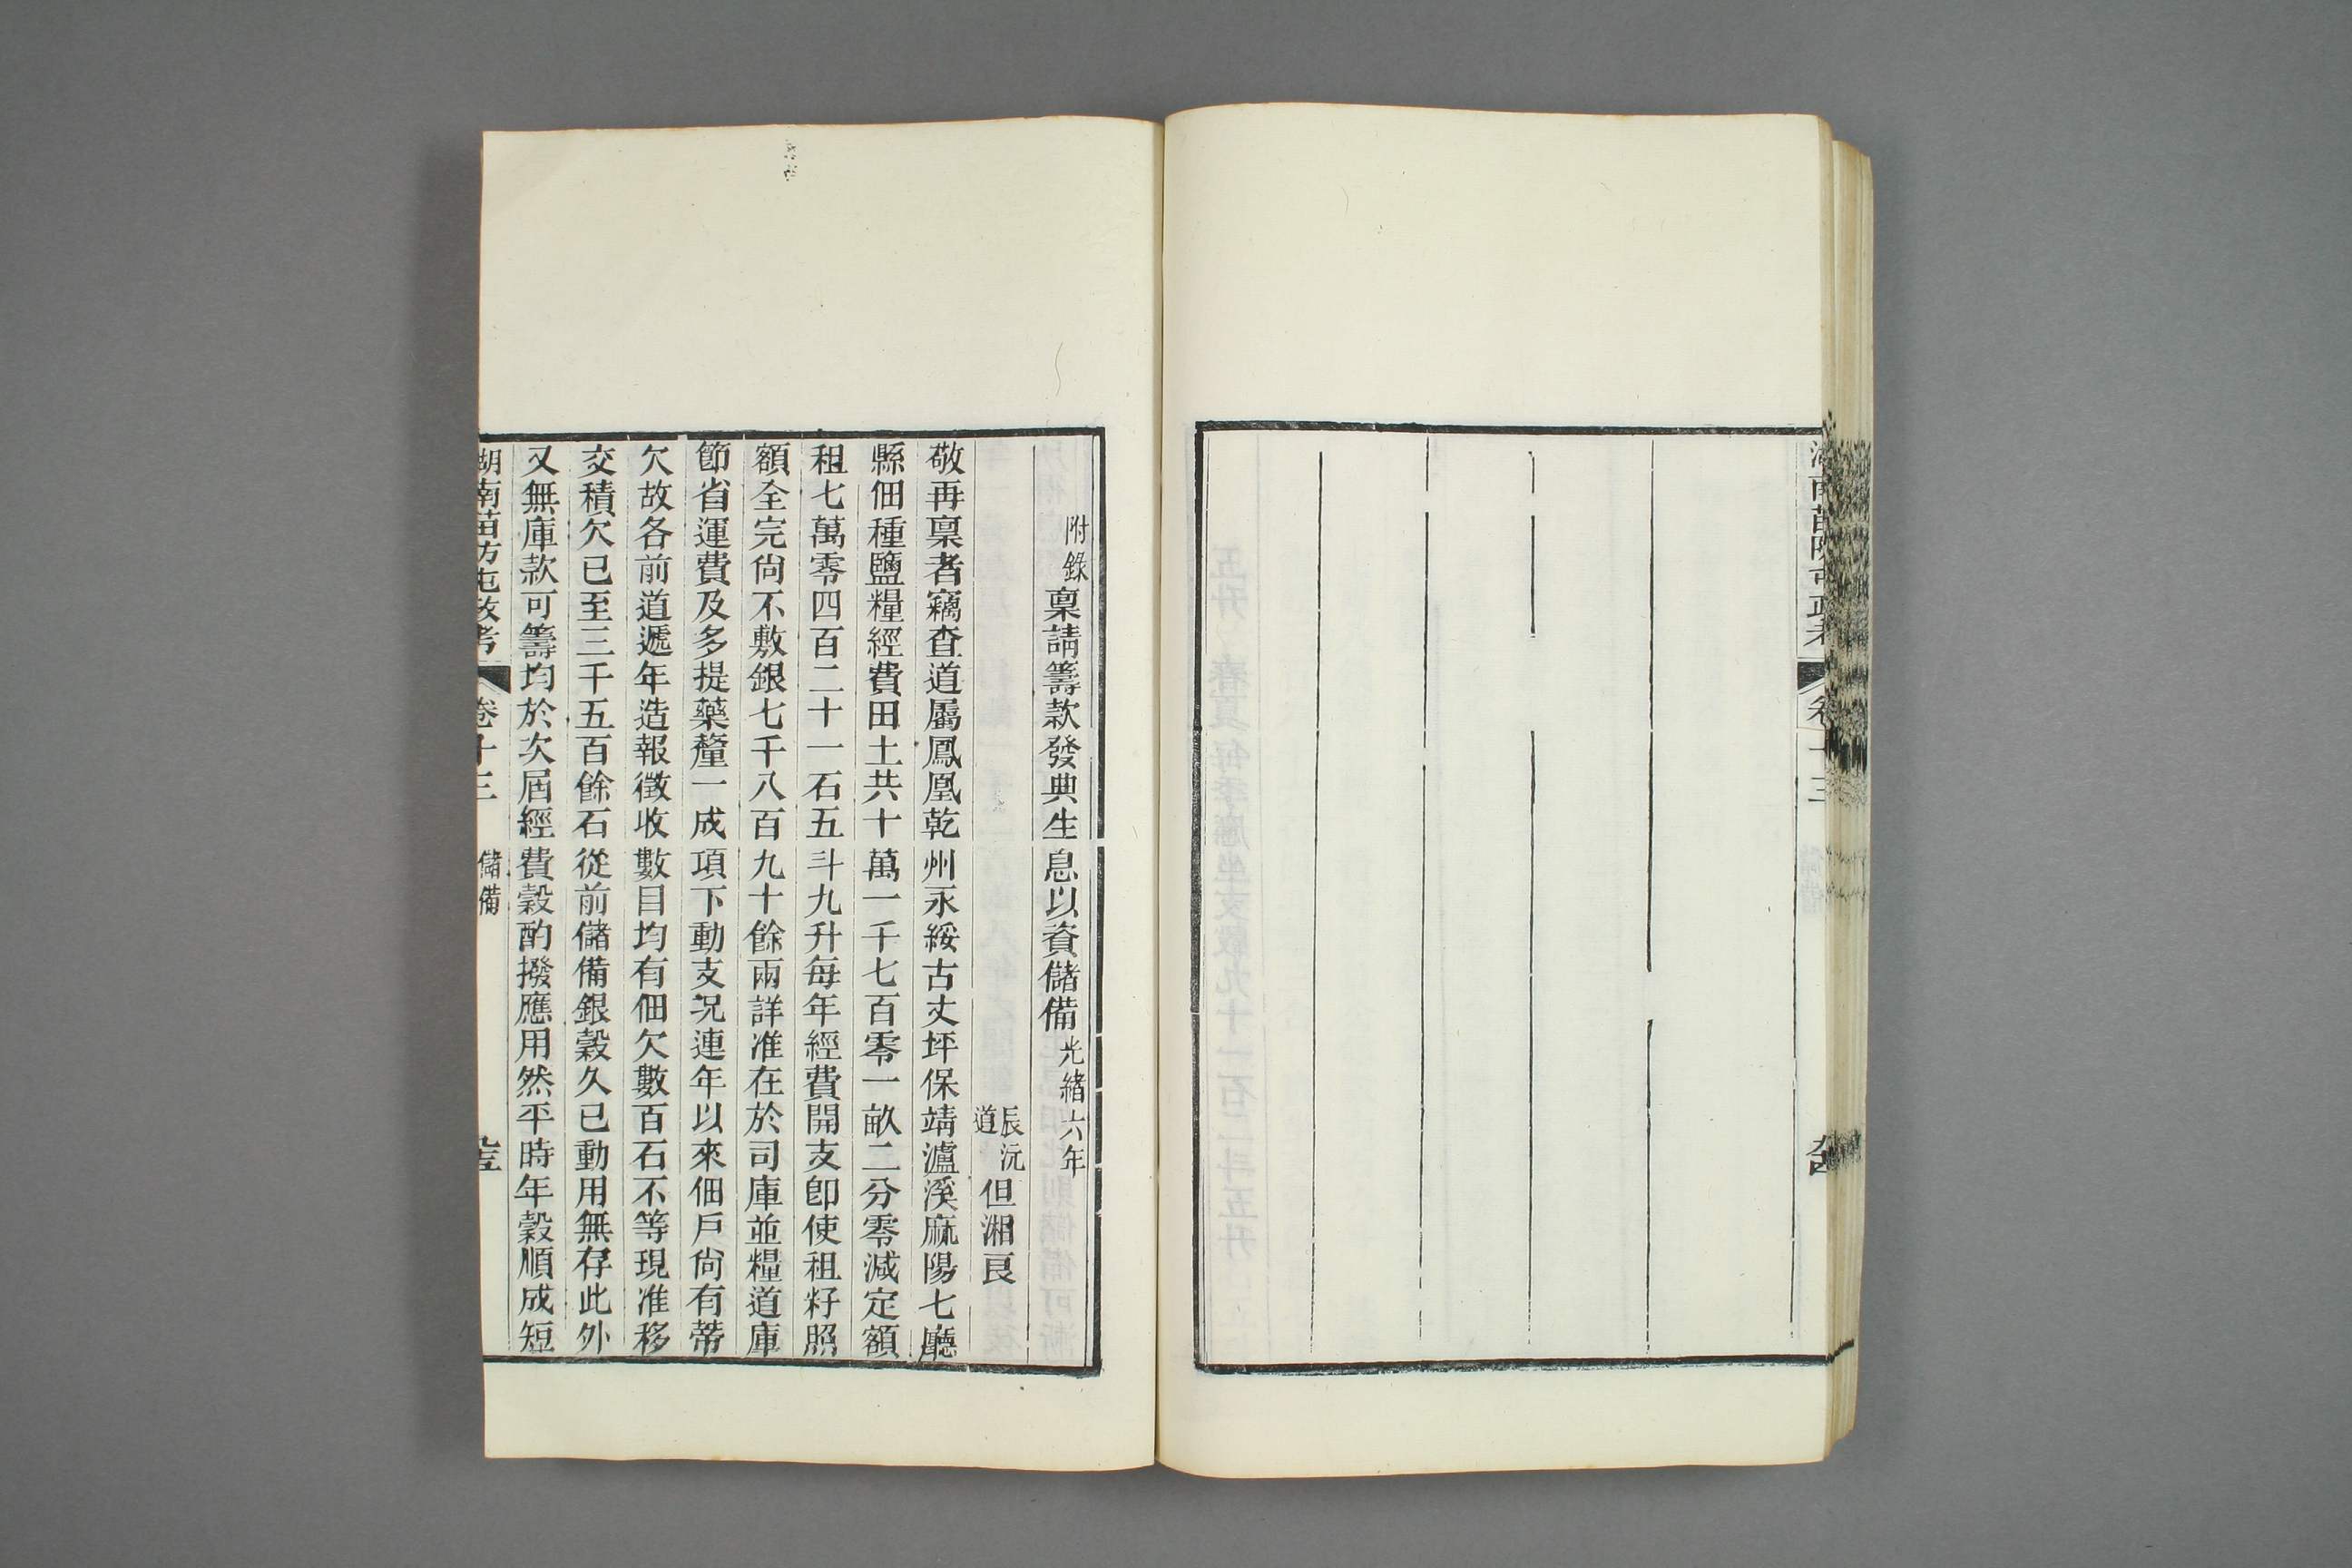 附錄稟請籌款發典生息以資儲備光緒六年
辰沅道但湘良
敬再稟者竊查道屬鳳凰乾州永綏古丈坪保靖瀘溪麻陽七廳
縣佃種鹽糧經費田土共十萬一千七百零一畝二分零減定額
租七萬零四百二十一石五斗九升每年經費開支卽使租籽照
額全完尙不敷銀七千八百九十餘兩詳准在於司庫並糧道庫
節省運費及多提藥釐一成項下動支况連年以來佃戶尙有蒂
欠故各前道遞年造報徵收數目均有佃欠數百石不等現准移
交積欠已至三千五百餘石從前儲備銀穀久已動用無存此外
又無庫款可籌均於次屆經費穀酌撥應用然平時年穀順成短
湖南苗防屯政考 卷十三 儲備
湖南苗防屯政考 卷十三